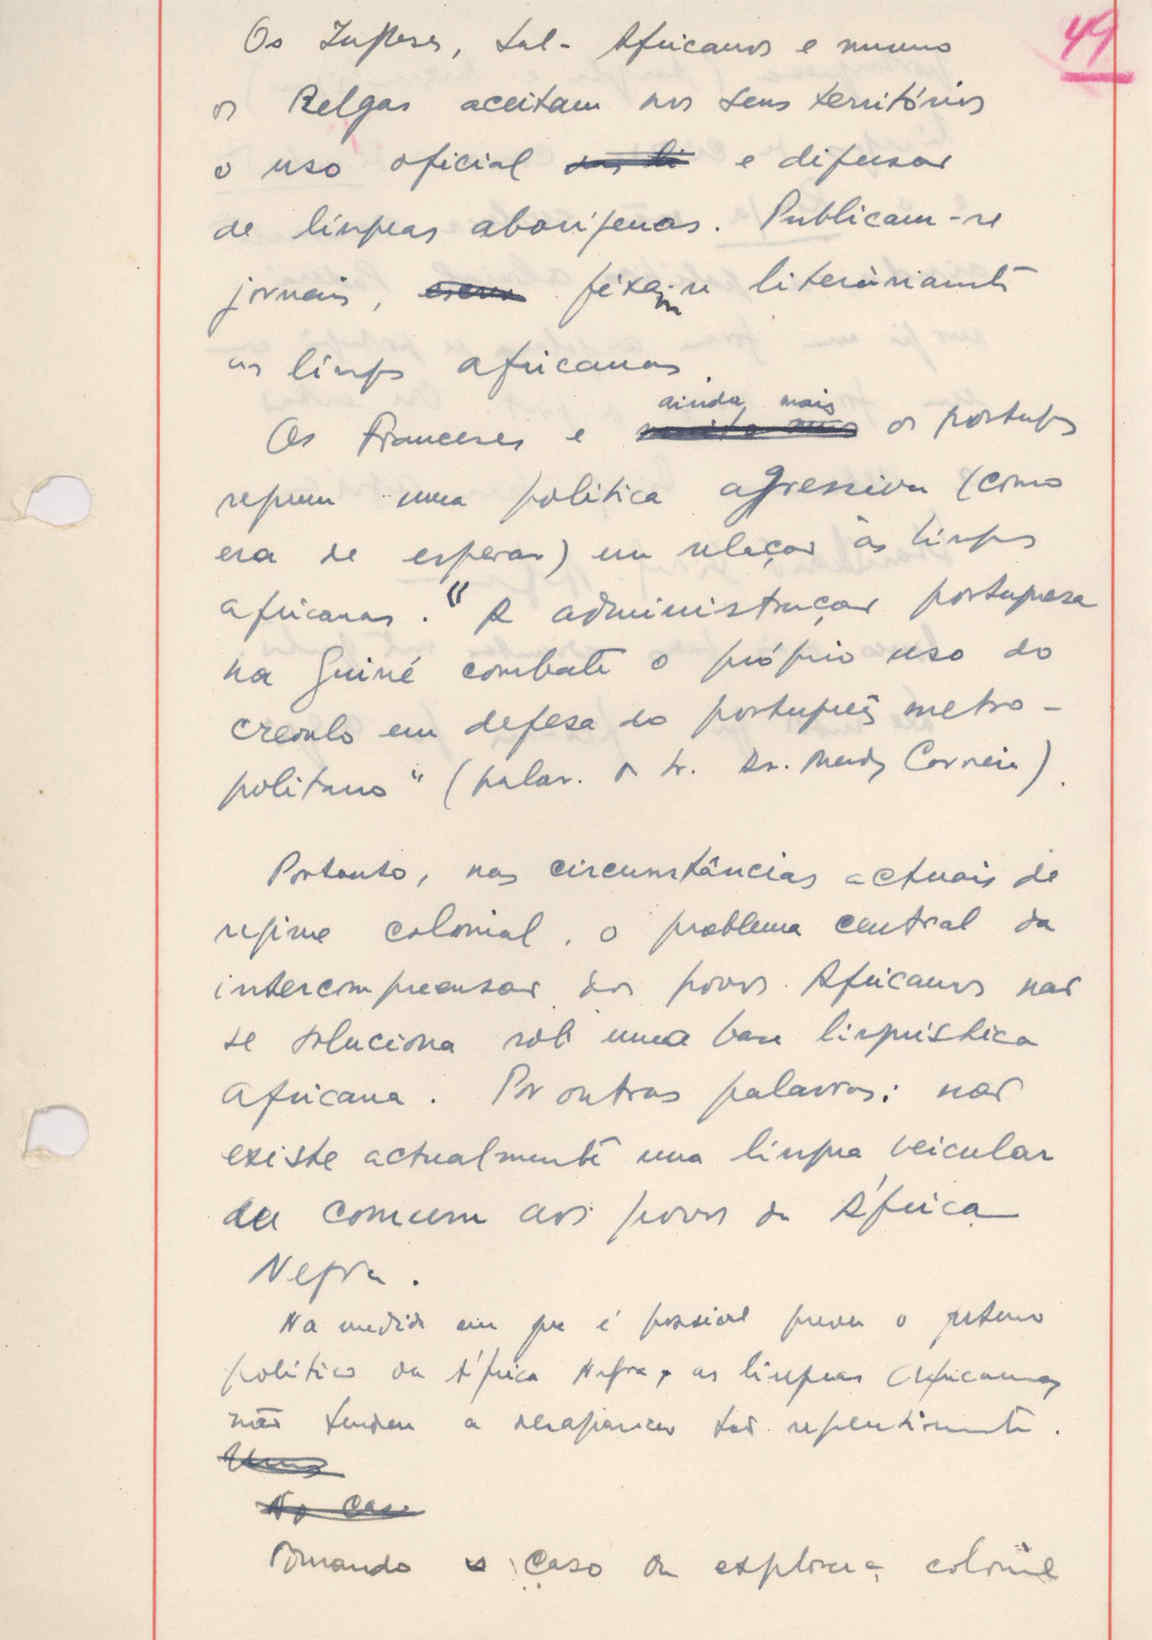 49
Os Ingleses, Sul-Africanos e mesmo
os Belgas aceitam nos seus territórios
o uso oficial e difusão
de línguas aborígenas. Publicam-se
jornais, fixam-se literàriamente
as línguas africanas.
ainda mais
Os Franceses e os portugs
seguem uma política agressiva (como
era de esperar) em relação às línguas
africanas. "A administração portuguesa
na Guiné combate o próprio uso do
creoulo em defesa do português metro-
politano" (palav. do Sr. Dr. Mendes Correia).
Portanto, nas circunstâncias actuais de
regime colonial, o problema central da
intercompreensão dos povos Africanos não
se soluciona sob uma base linguística
africana. Por outras palavras: não
existe actualmente uma língua veicular
comum aos povos da África
Negra.
Na medida em que é possível prever o futuro
político da África Negra, as línguas Africanas
não tendem a desaparecer tão repentinamente.
No caso
Tomando o caso da exploração colonial